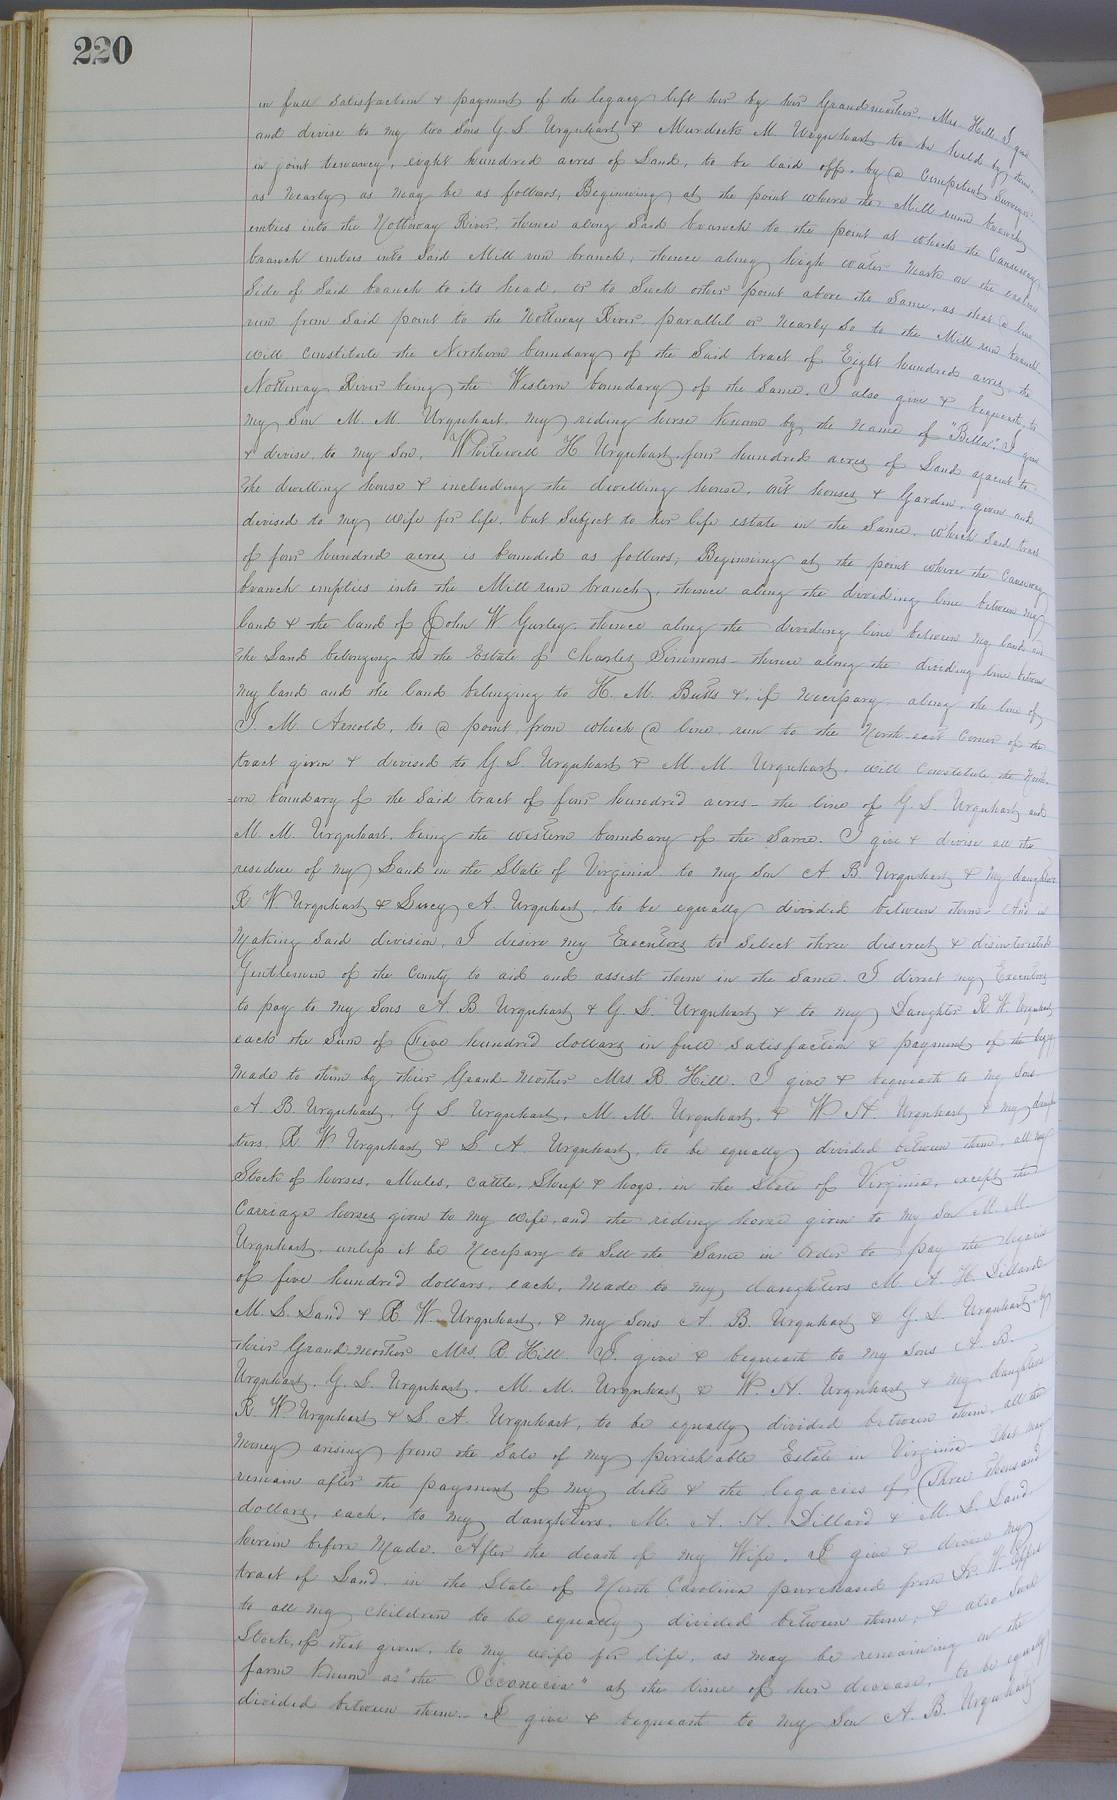 220
in full satisfaction & payment of the legacy left her by her Grandmother, Mrs. Hill. I give
and devise to my two Sons G. S. Urquhart & Murdock M. Urquhart to be held by them,
in joint tenancy, eight hundred acres of Land, to be laid off, by a Competent Surveyor
as nearly as may be as follows, Beginning at the point where the Mill run branch
enters into the Nottoway River, thence along Said branch to the point at which the Causeway
branch enters into Said Mill run branch, thence along high water mark on the eastern
Side of Said branch to its head, or to Such other point above the Same, as that a line
run from Said point to the Nottoway River, parallel or nearly So to the Mill run branch
will constitute the Northern boundary of the Said tract of Eight hundred acres, the
Nottoway River being the Western boundary of the Same. I also give & bequeath to
my Son M. M. Urquhart, my riding horse known by the name of "Bella". I give
& devise to my Son, Whitewell H Urquhart, four hundred acres of Land ajacent to
the dwelling house & including the dwelling house, out houses & Garden, given and
devised to my wife for life, but Subject to her life estate in the Same, which Said tract
of four hundred acres is bounded as follows; Beginning at the point where the Causeway
branch empties into the Mill run branch, thence along the dividing line between my
land & the land of John W Gurley, thence along the dividing line between my land and
the Land belonging to the Estate of Charles Simmons - thence along the dividing line between
my land and the land belonging to H. M. Butts &, if necessary, along the line of
J. M. Arnold, to a point from which a line, run to the North east Corner of the
tract given & devised to G S. Urquhart & M. M. Urquhart, will Constitute the North-
-ern boundary of the Said tract of four hundred acres - the line of G. S. Urquhart and
M. M. Urquhart, being the western boundary of the Same. I give & devise all the
residue of my Land in the State of Virginia to my Son A B. Urquhart & my daughters
R W Urquhart & Lucy A. Urquhart, to be equally divided between them. And in
Making Said division, I desire my Executors to Select three discreet & disinterested
Gentlemen of the County to aid and assist them in the Same. I direct my Executors
to pay to my Sons A. B. Urquhart & G. S. Urquhart & to my Daughter R. W. Urquhart
each the Sum of Five hundred dollars in full Satisfaction & payment of the legacy
made to them by their Grand Mother Mrs R Hill. I give & bequeath to my Sons
A B. Urquhart, G S Urquhart, M. M. Urquhart, & W H. Urquhart & my daugh-
ters R W Urquhart & L. A. Urquhart, to be equally divided between them, all my
Stock of horses, Mules, Cattle, Sheep & hogs, in the State of Virginia, except the
Carriage horses given to my wife, and the riding horse given to my Son M. M.
Urquhart, unless it be Necessary to Sell the Same in Order to pay the legacies
of five hundred dollars, each, made to my daughters M. A. H. Dillard
M. S. Land & R. W. Urquhart, & my Sons A. B. Urquhart & G. S. Urquhart, by
their Grandmother Mrs. R. Hill. I give & bequeath to my Sons A. B.
Urquhart, G. S. Urquhart, M. M. Urquhart & W. H. Urquhart & my daughters
R. W Urquhart & L. A. Urquhart, to be equally divided between them, all the
money arising from the Sale of my perishable Estate in Virginia that may
remain after the payment of my debts & the legacies of (Three thousand
dollars, each, to my daughters, M. A. H. Dillard & M. S. Land
herein before Made. After the death of my Wife, I give & devise my
tract of Land, in the State of North Carolina purchased from
to all my children to be equally divided between them, & also Said
Stock, of that given, to my wife for life, as may be remaining on the
farm known as "the Occoneecee" at the time of her decease, to be equally
divided between them. - I give & bequeath to my Son A. B. Urquhart